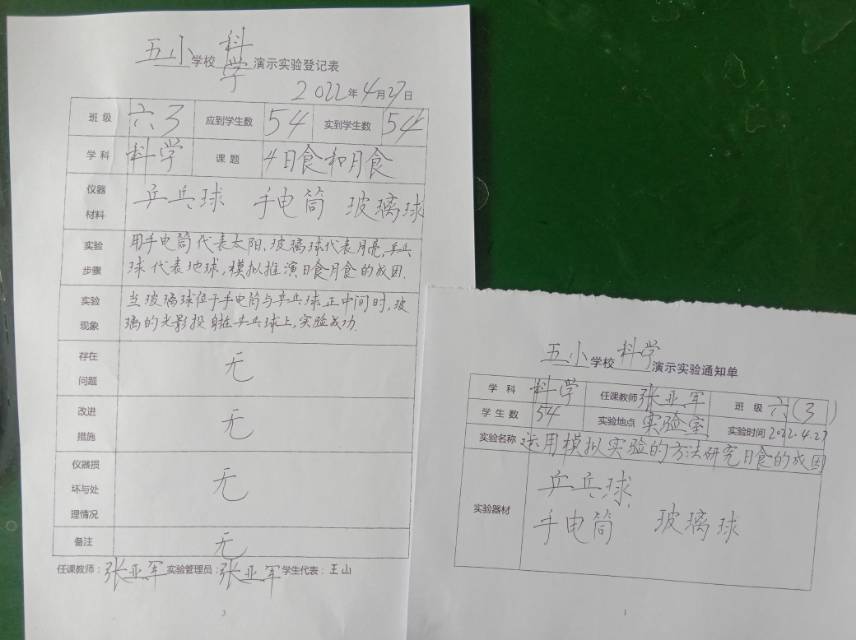 五小学校科学演示实验登记表
2022年4月27日
班级 六3 应到学生数 54 实到学生数 54
学科 科学 课题 4日食和月食
仪器材料 乒乓球 手电筒 玻璃球
实验步骤 用手电筒代表太阳,玻璃球代表月亮,乒乓
球代表地球,模拟推演日食月食的成因.
实验现象 当玻璃球位于手电筒与乒乓球正中间时,玻
璃的光影投射在乒乓球上,实验成功.
存在问题 无
改进措施 无
仪器损坏与处理情况 无
备注 无
任课教师:张亚军 实验管理员:张亚军 学生代表:王山
3
五小学校科学演示实验通知单
学科 科学 任课教师 张亚军 班级 六(3)
学生数 54 实验地点 实验室 实验时间 2022.4.27
实验名称 运用模拟实验的方法研究日食的成因
实验器材 乒乓球
手电筒 玻璃球
1